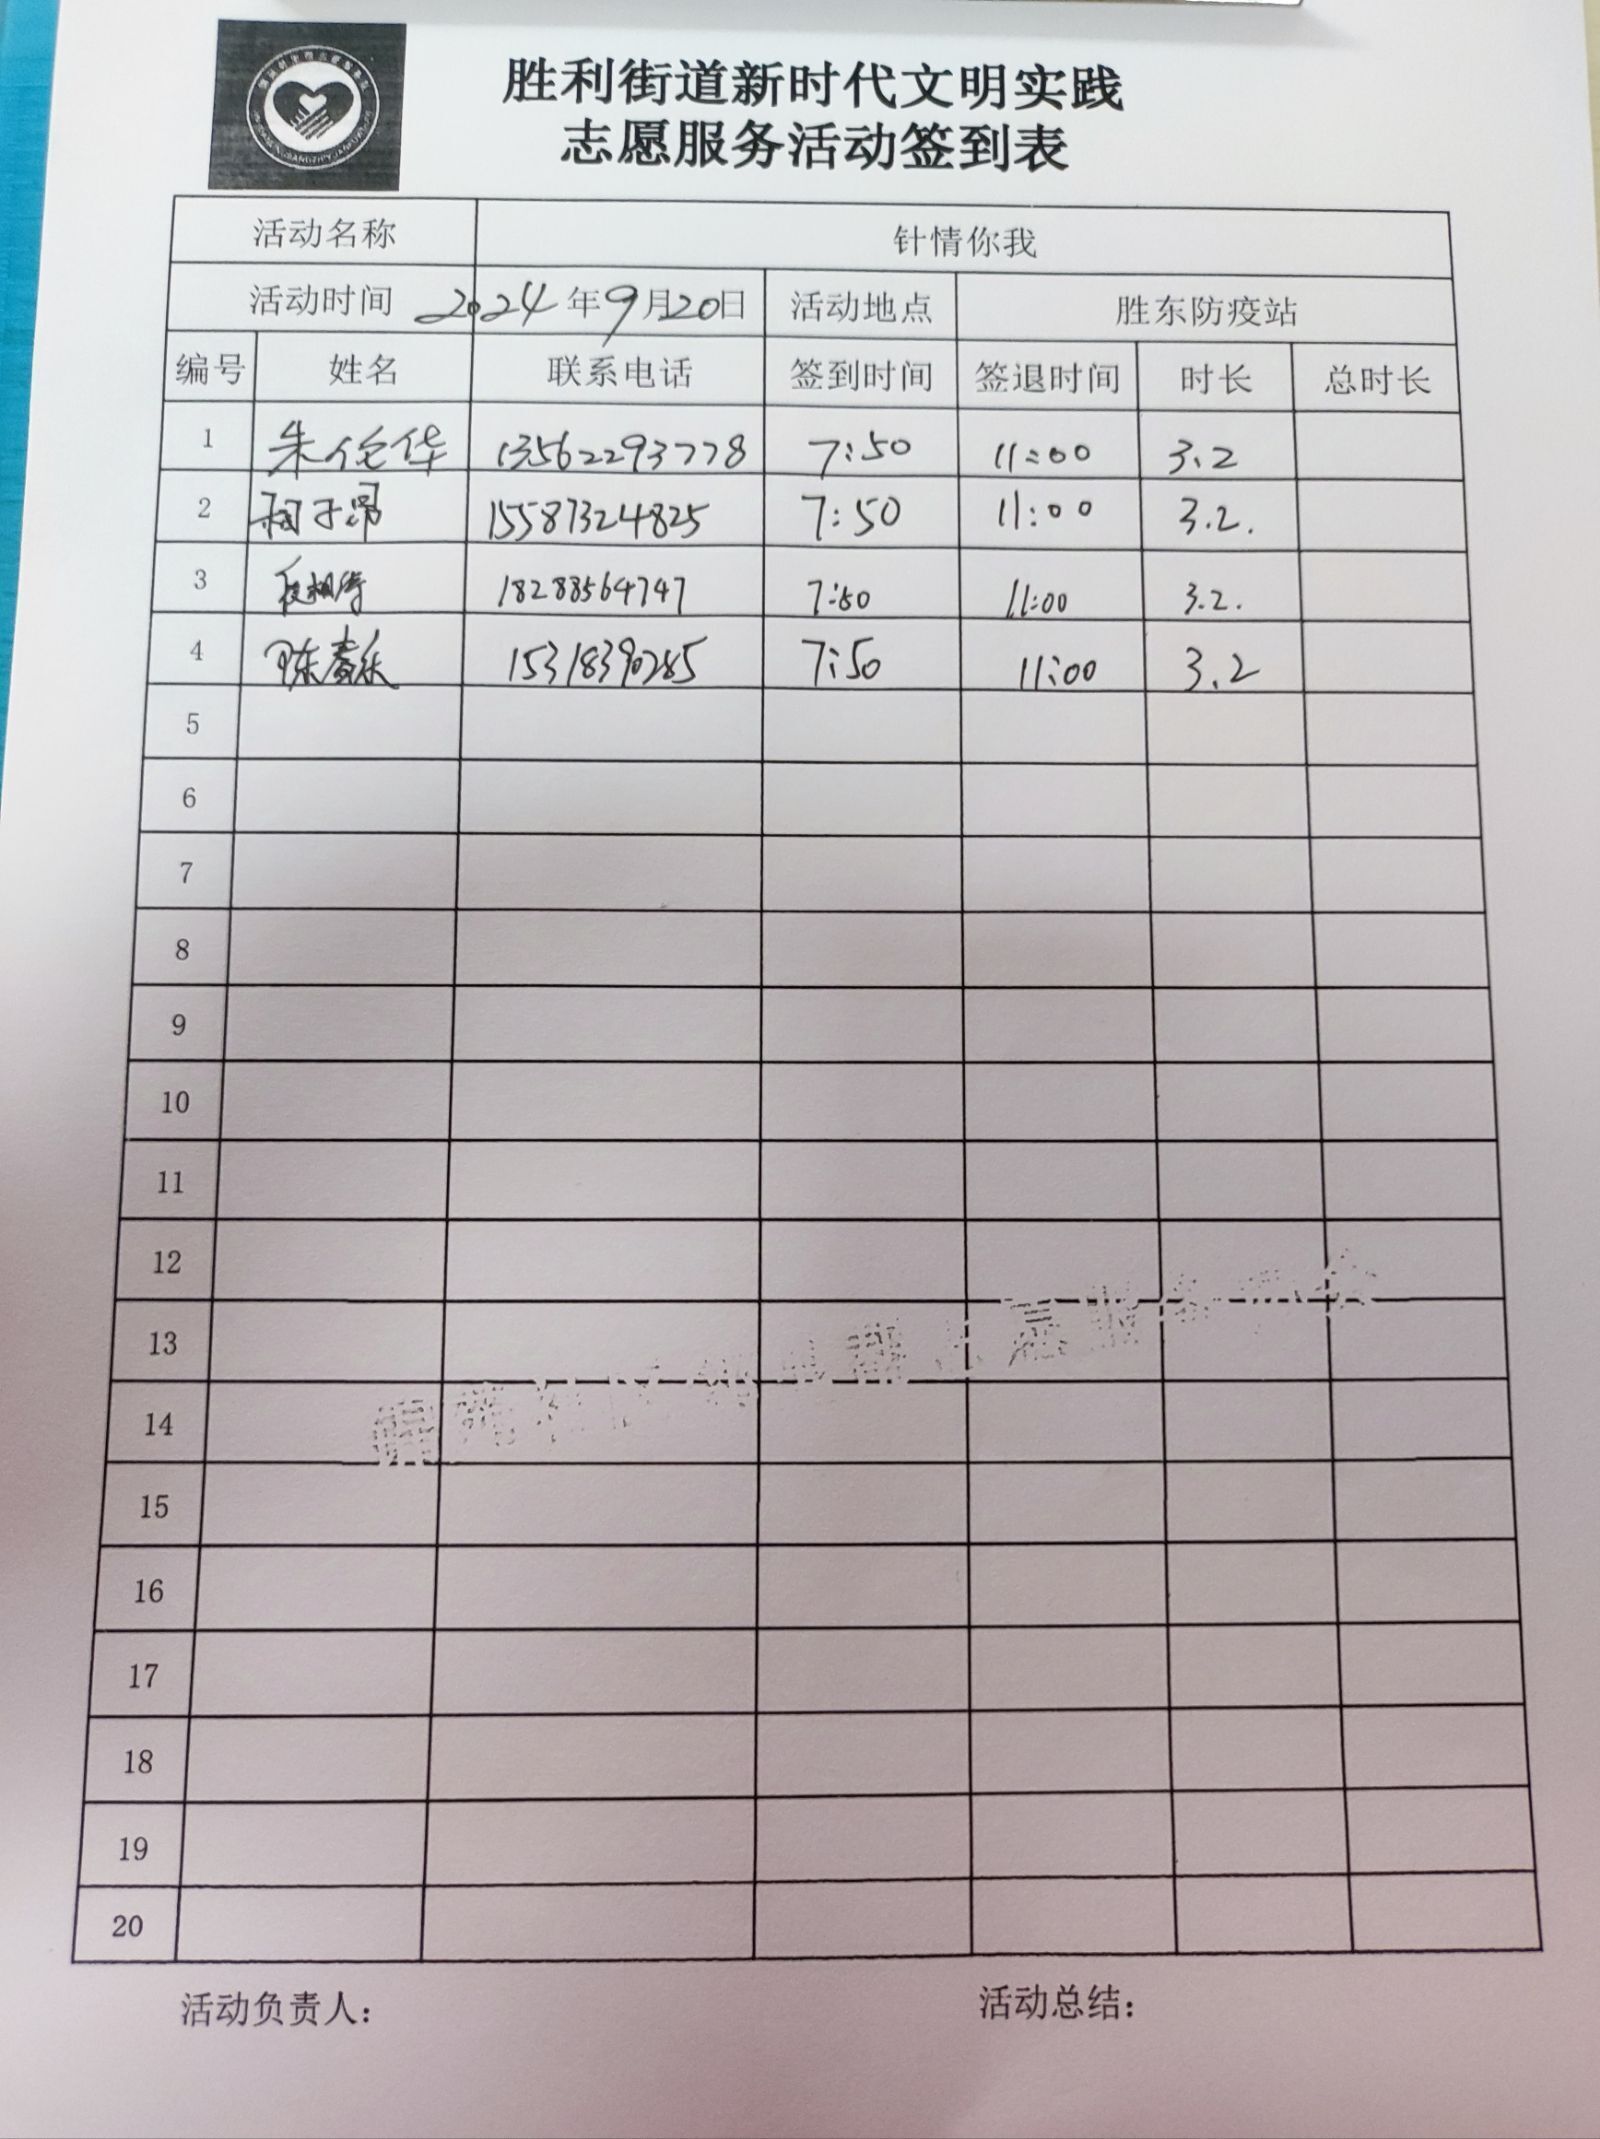 胜利街道新时代文明实践
志愿服务活动签到表
活动名称 针情你我
活动时间 2024年9月20日 活动地点 胜东防疫站
编号 姓名 联系电话 签到时间 签退时间 时长 总时长
1 朱伦华 13562293778 7:50 11:00 3.2
2 子昂 15587324825 7:50 11:00 3.2.
3 18288564747 7:50 11:00 3.2.
4 陈 15318390285 7:50 11:00 3.2
5
6
7
8
9
10
11
12
13
14
15
16
17
18
19
20
活动负责人： 活动总结：